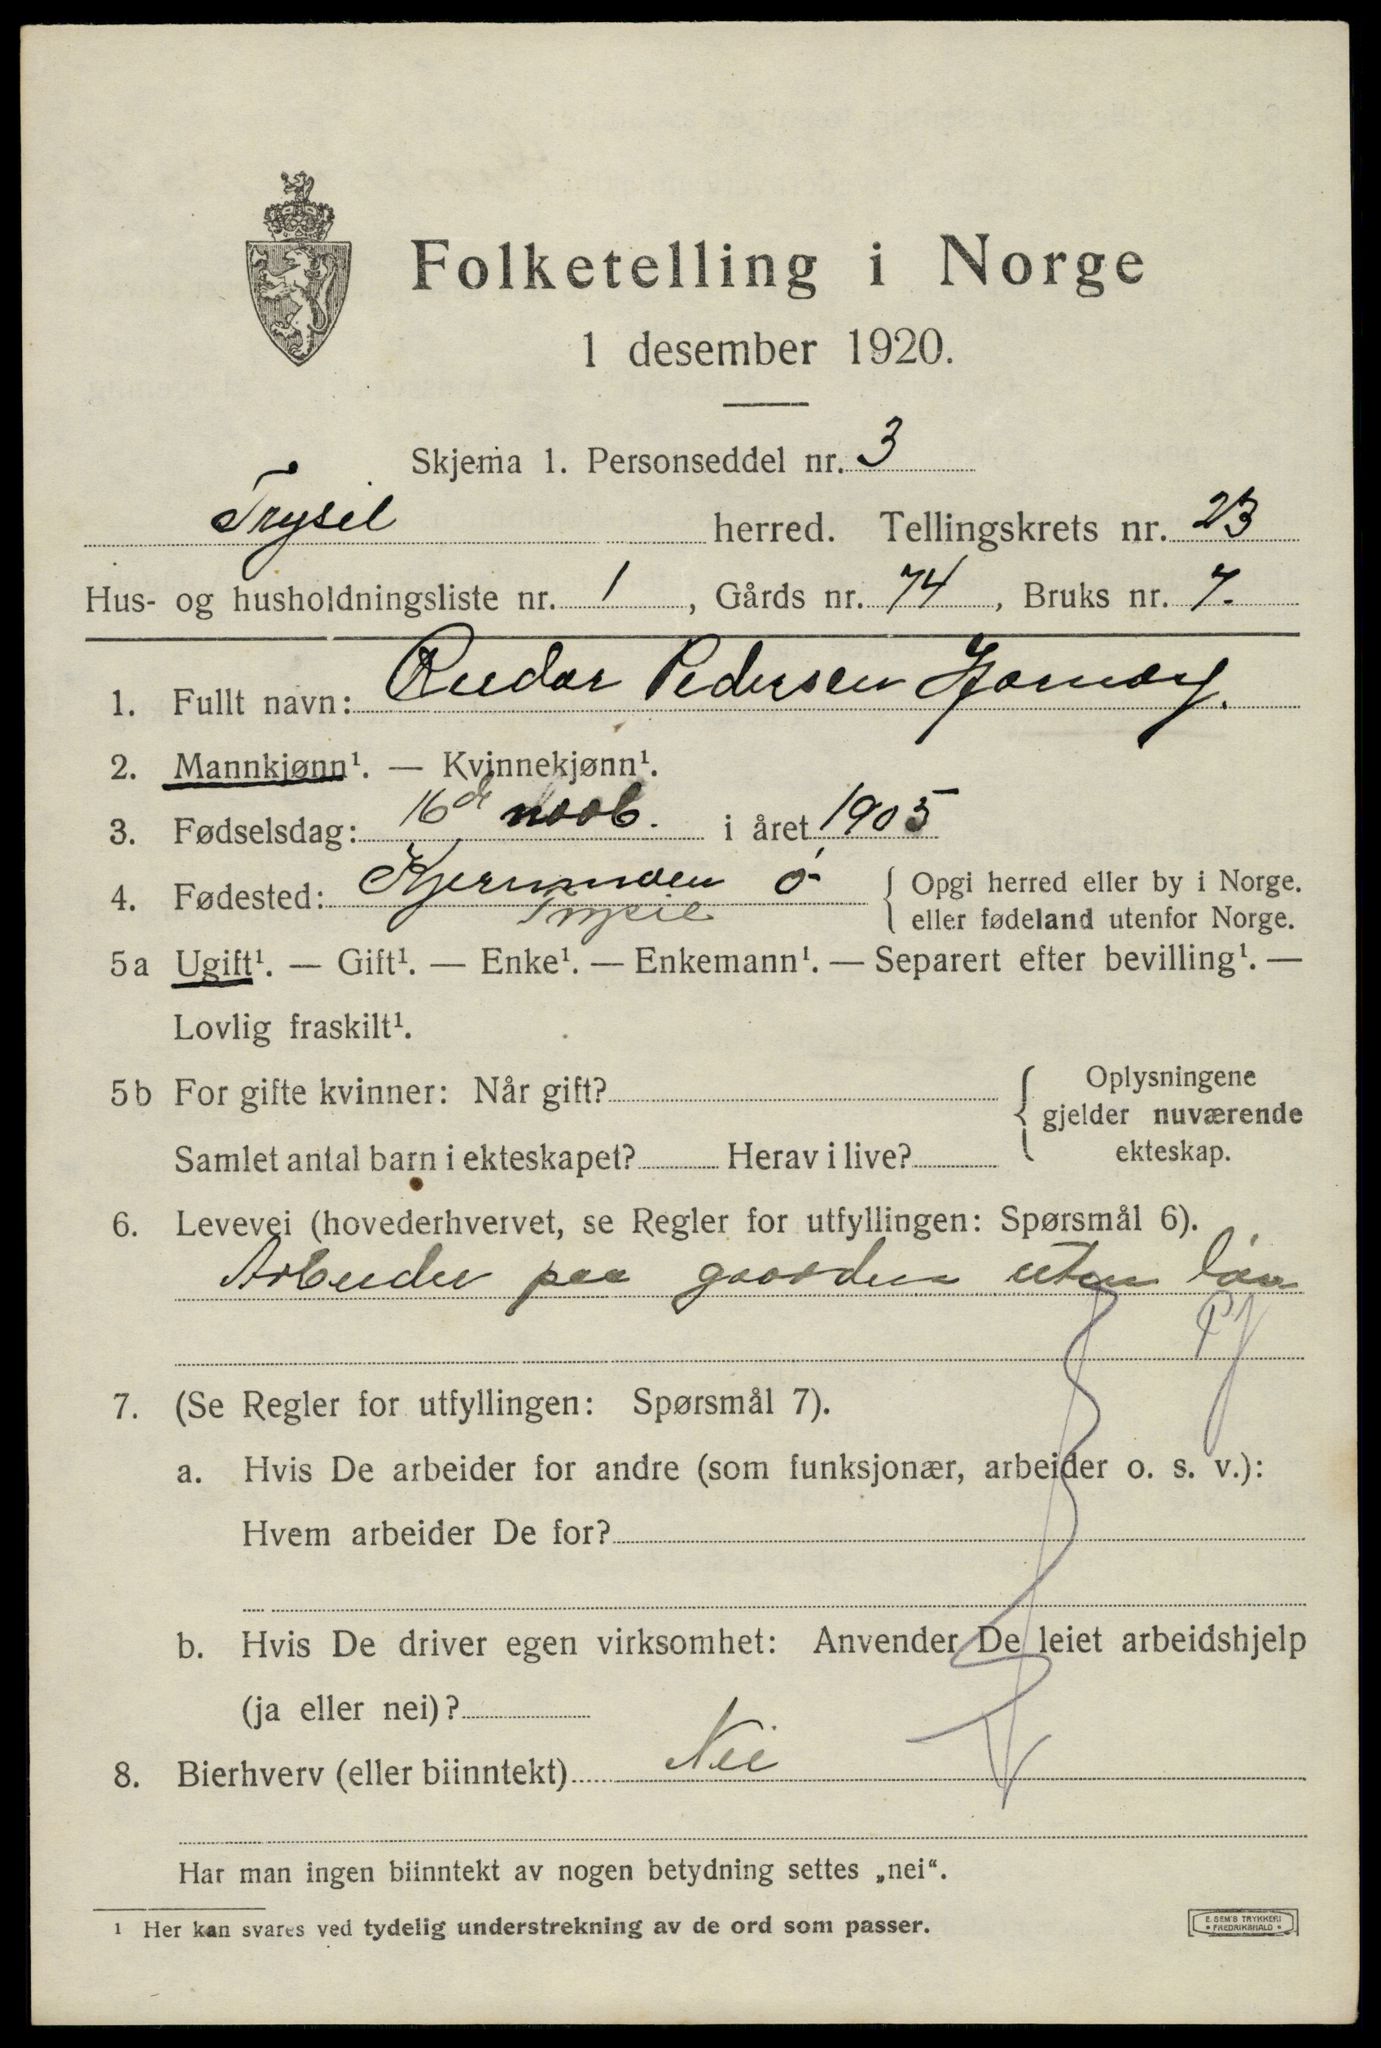 Folketelling i Norge
1 desember 1920.
Skjema 1. Personseddel nr. 3
Trysil herred. Tellingskrets nr. 23
Hus- og husholdningsliste nr. 1, Gårds nr. 74, Bruks nr. 7.
1. Fullt navn: Pedersen
2. Mannkjønn¹. — Kvinnekjønn¹.
3. Fødselsdag: 16de i året 1905
4. Fødested: Opgi herred eller by i Norge.
Trysil eller fødeland utenfor Norge.
5a Ugift¹. — Gift¹. — Enke¹. — Enkemann¹. — Separert efter bevilling¹. —
Lovlig fraskilt¹.
5b For gifte kvinner: Når gift? Oplysningene
gjelder nuværende
Samlet antal barn i ekteskapet? Herav i live? ekteskap.
6. Levevei (hovederhvervet, se Regler for utfyllingen: Spørsmål 6).
Arbeider paa gaarden uten løn
7. (Se Regler for utfyllingen: Spørsmål 7).
a. Hvis De arbeider for andre (som funksjonær, arbeider o. s. v.):
Hvem arbeider De for?
b. Hvis De driver egen virksomhet: Anvender De leiet arbeidshjelp
(ja eller nei)?
8. Bierhverv (eller biinntekt) Nei
Har man ingen biinntekt av nogen betydning settes „nei“.
¹ Her kan svares ved tydelig understrekning av de ord som passer.
E. SEM'S TRYKKERI
• FREDRIKSHALD •